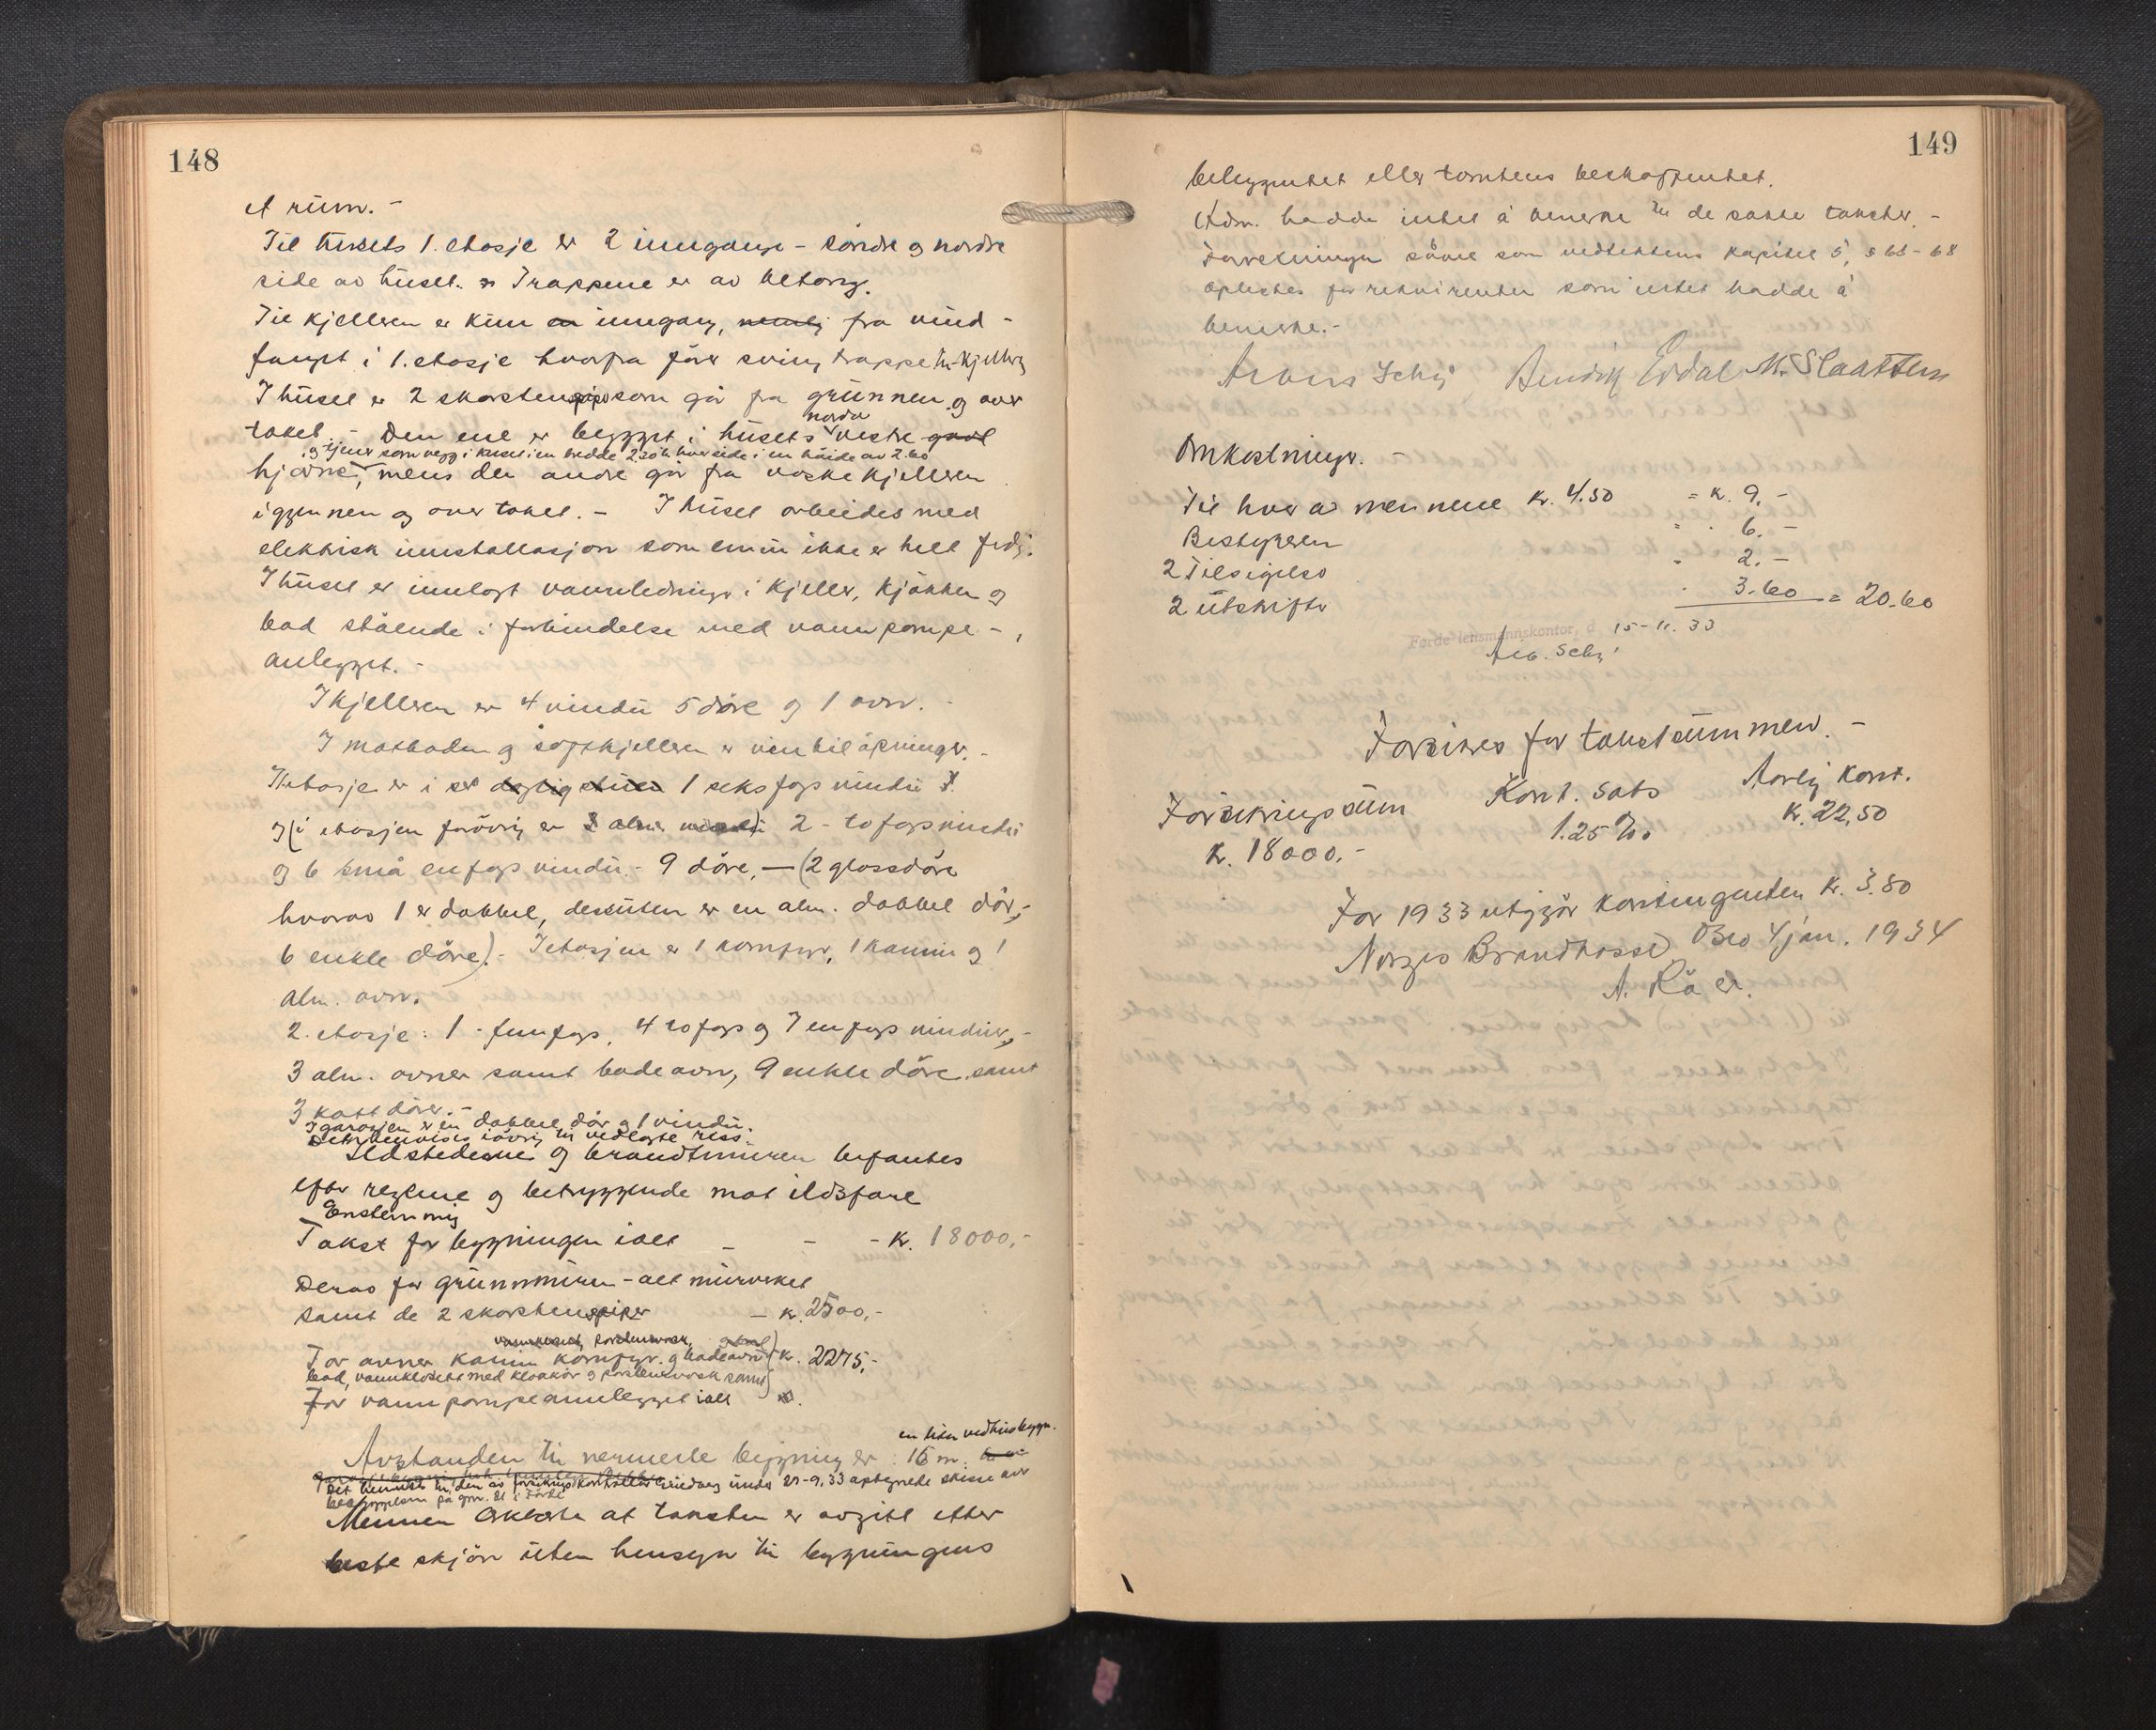 148
et rum.-
Til husets 1. etasje er 2 innganger - söndre og nordre
side av huset. Trappene er av betong.
Til kjelleren er kun en inngang, nemlig fra vind-
fanget i 1. etasje hvorfra förer svingtrappe til kjelleren
I huset er 2 skorstenspiper som går fra grunnen og over
taket.- Den ene er bygget i husets nordvestre gavl
og tjener som vegg i huset i en bredde 2.20 til hver side i en höide av 2.60
hjörne, mens den andre går fra vaskekjelleren
igjennem og over taket.- I huset arbeides med
elektrisk innstallasjon som ennu ikke er helt ferdig.
I huset er innlagt vannledninger i kjeller, kjökken og
bad stående i forbindelse med vannpumpe-
anlegget.-
I kjelleren er 4 vindu 5 döre og 1 ovn.-
I matboden og saftkjelleren er ventilåpninger.-
I 1ste etasje er i dagligstuen 1 seksfags vindu
og (i etasjen forövrig er alm. vindu 2 - tofagsvindu
og 6 små enfags vindu.- 9 döre,- (2 glassdöre
hvorav 1 er dobbel, dessuten er en alm. dobbel dör,-
6 enkle döre).- I etasjen er 1 komfyr, 1 kamin og 1
alm. ovn.
2. etasje: 1 - femfags, 4 tofags og 7 enfags vinduer,-
3 alm. ovner samt badeovn, 9 enkle döre samt
3 kott dörer.-
I garasjen er en dobbel dör og 1 vindu.
Det henvises iövrig til vedlagte riss.-
Ildstederne og brandmuren befantes
efter reglene og betryggende mot ildsfare
Enstemmig
Takst for bygningen ialt - - - kr. 18000,-
Derav for grunnmuren - alt murverket
samt de 2 skorstenspiper - kr. 2500,-
vannklosett, porslensvask,
For ovner kamin komfyr. og badeovn kr. 2275,-
bad, vannklosett med kloakrör og porslensvask samt
For vannpumpeannlegget ialt
en liten vedhusbygn.
Avstanden til nermeste bygning er 16 m.
Det henvises til den av forsikringskontrollör Grindvag under 27-9.33 optegnede skisse over
bebyggelsen på gnr. 21 i Förde
Mennen erklærte at taksten er avgitt efter
beste skjön uten hensyn til bygningens
149
beliggenhet eller tomtens beskaffenhet.
Adm. hadde intet å bemerke til de satte takster.-
Forretningen såvel som vedtektens kapitel 5, § 66-68
oplestes for rekvirenten som intet hadde å
bemerke.-
Hendrik Erdal M. Slaatten
Omkostninger.-
Til hver av mennene kr. 4.50 = kr. 9.-
Bestyreren " " 6.-
2 Tilsigelse " 2.-
2 utskrifter " 3.60 = 20.60
Førde lensmannskontor, d. 15-11.33
Forsikres for takstsummen.-
Forsikringssum Kont. sats Aarlig kont.
kr. 18000.- 1.25 ‰ kr. 22,50
For 1933 utgjör kontingenten kr. 3.80
Norges Brandkasse, Oslo 4 jan. 1934